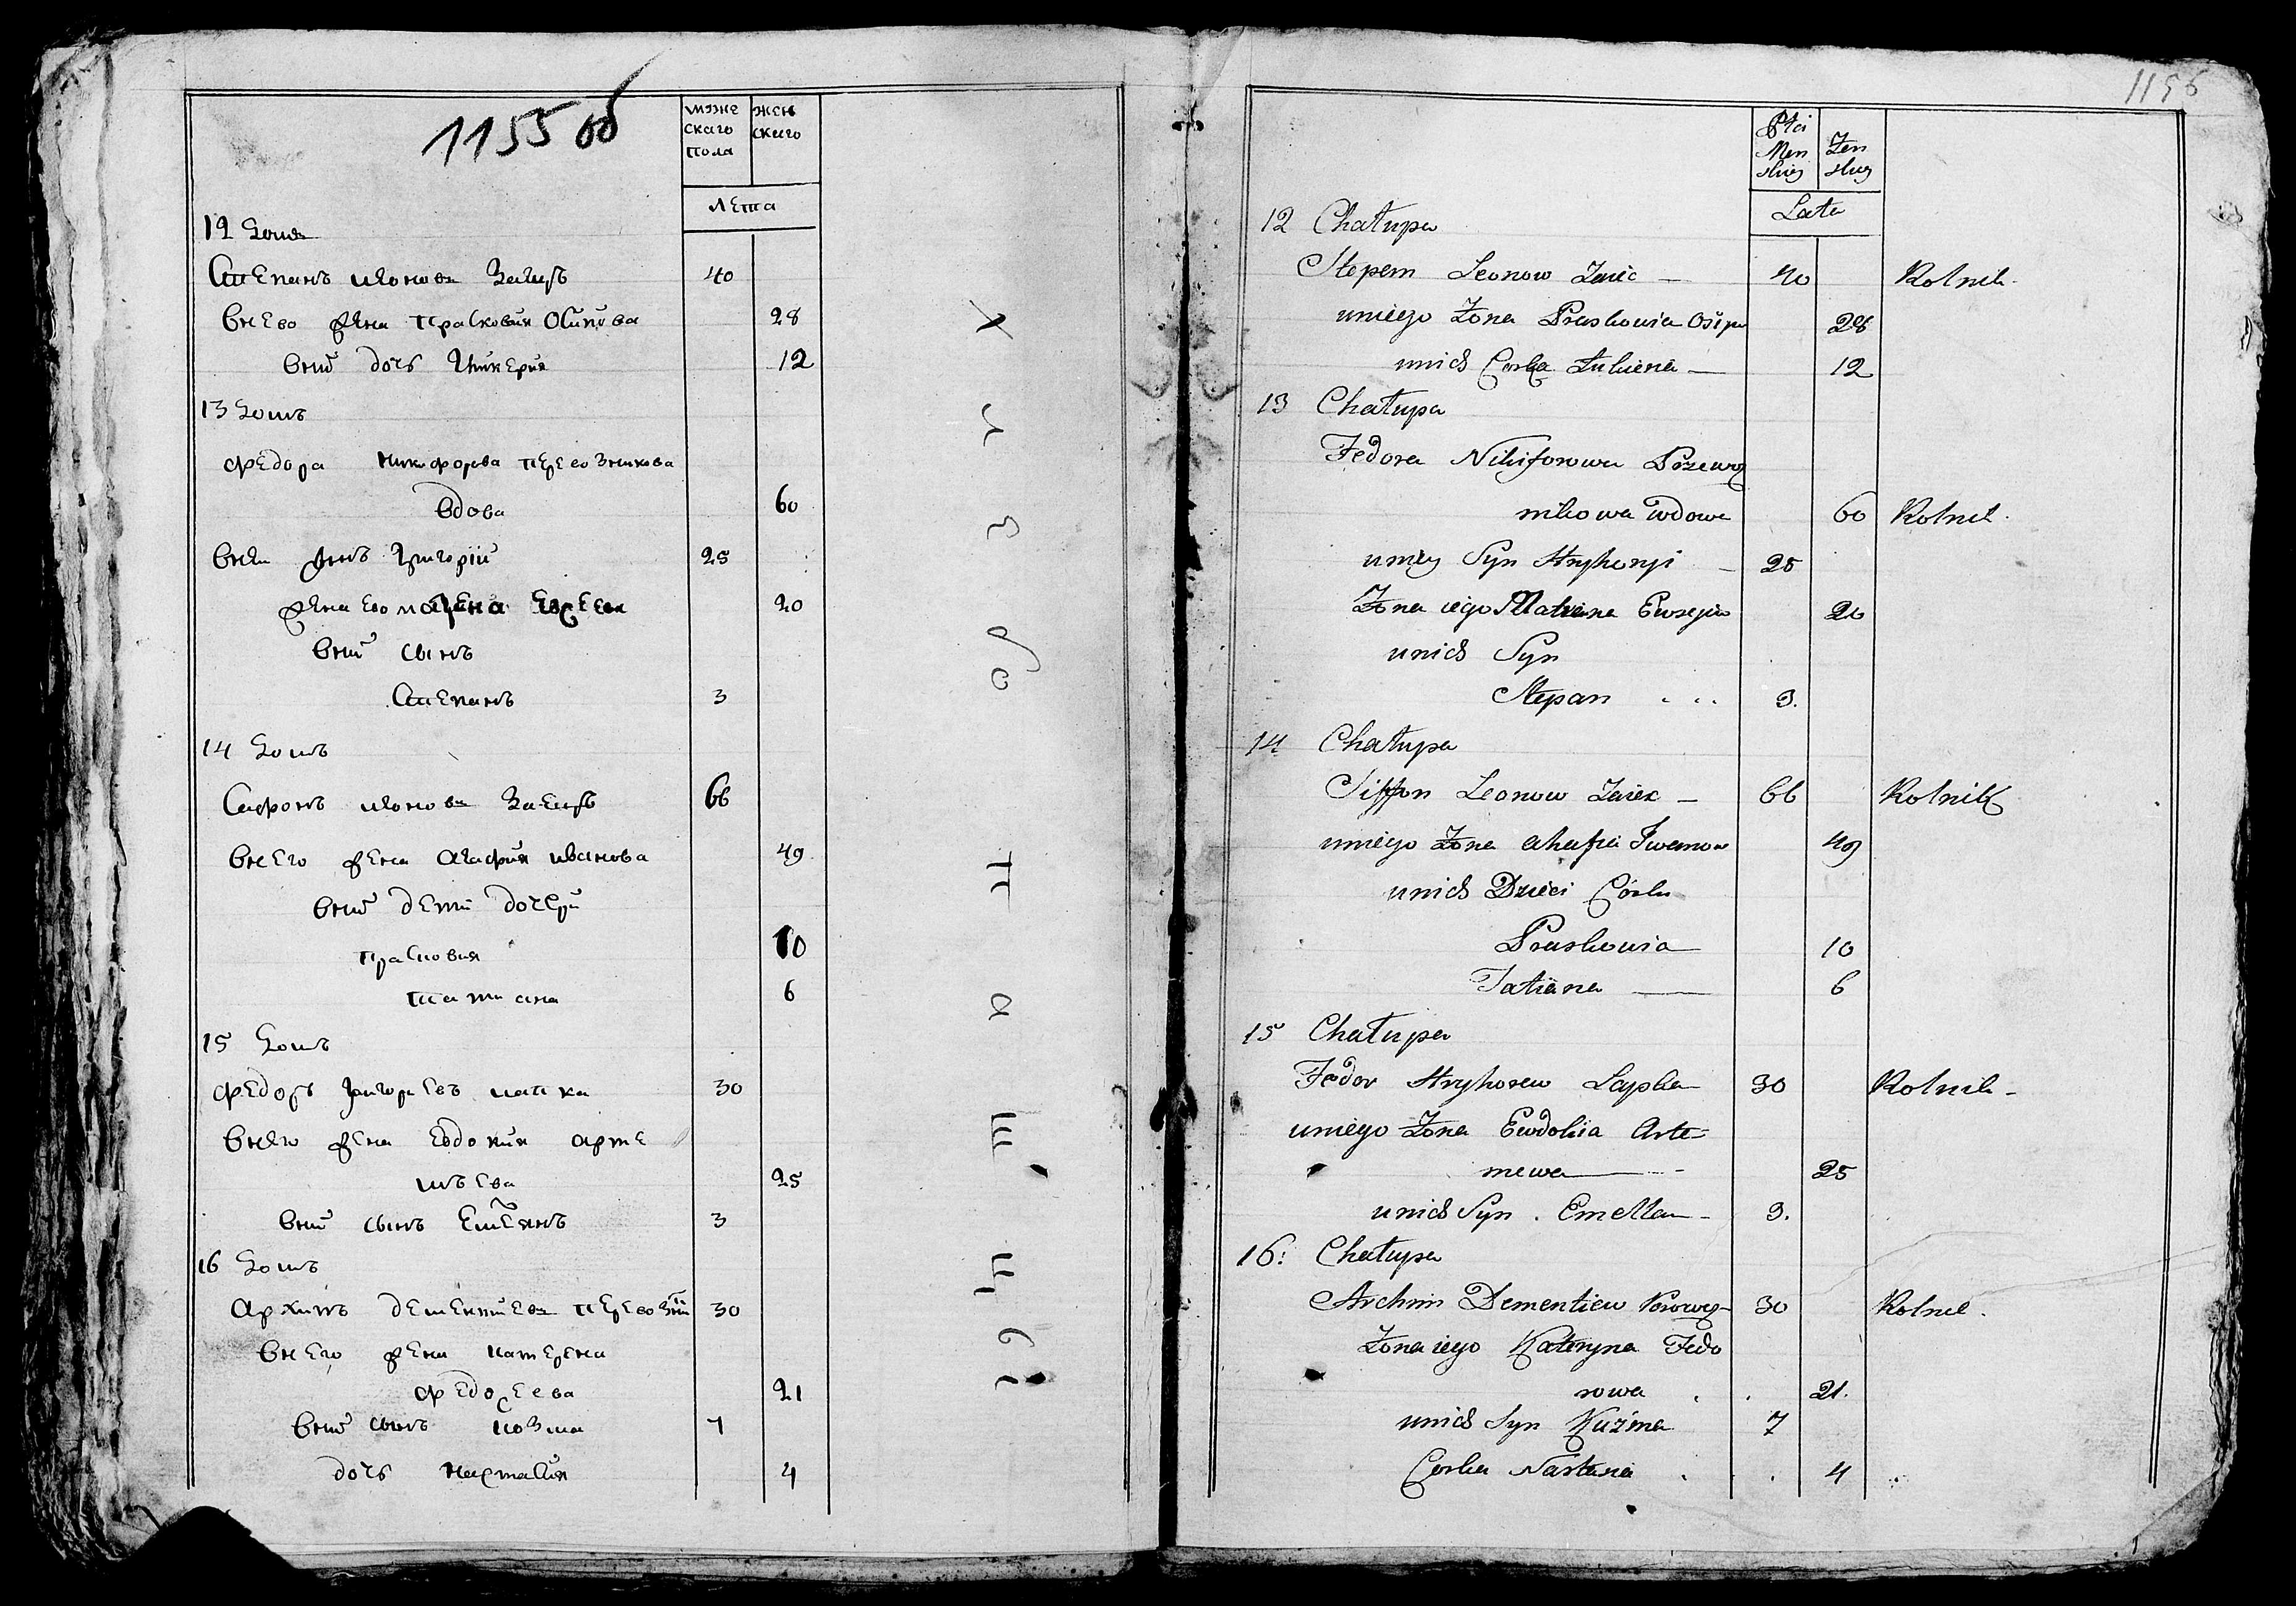 1155 об
муже
скаго
пола
жен
скаго
лета
12 Домъ
Степанъ леоновъ Заицъ 40
внево жена прасковия Осипова 28
вних дочь Гликерия 12
13 Домъ
Федора никифорова перевозникова
вдова 60
внеи сынъ Григорiи 25
жена ево матрена Евсеева 20
вних сынъ
Степанъ 3
14 Домъ
Сафронъ леоновъ Заецъ 66
внего жена агафия иванова 49
вних дети дочери
прасковия 10
татиана 6
15 Домъ
Федоръ григорьевъ лапка 30
внего жена Евдокия арте
мьева 25
вних сынъ Емелянъ 3
16 Домъ
Архипъ дементиевъ 30
внего жена катерена
федорева 21
вних сынъ козма 7
дочь настасия 4
х
л
з
о
п
а
ш
ц
1156
Płci
Men
skiey
Żen
skiey
Lata
12 Chałupa
Stepan Leonow Zaiec — 40 Rolnik
uniego Żona Praskowia Osipo 28
unich Corka — 12
13 Chałupa
Fedora Nikiforowa Przewoz
nikowa wdowa 60 Rolnik
uniey Syn Hryhoryi — 25
Żona iego Matrena Ewseyew 20
unich Syn
Stepan 3.
14 Chałupa
Siffon Leonow Zaiec — 66 Rolnik
uniego Żona Ahafia Iwanow 49
unich Dzieci Córki
Praskowia 10
Tatiana — 6
15 Chałupa
Fedor Hryhorew Lapka 30 Rolnik —
uniego Żona Ewdokia Arte=
mewa — 25
unich Syn . Emelian — 3.
16: Chałupa
Archim Dementiew 30 Rolnik.
Żona iego Kateryna Fedo
rowa 21.
unich Syn Kuźma 7
Corka Nastasia 4